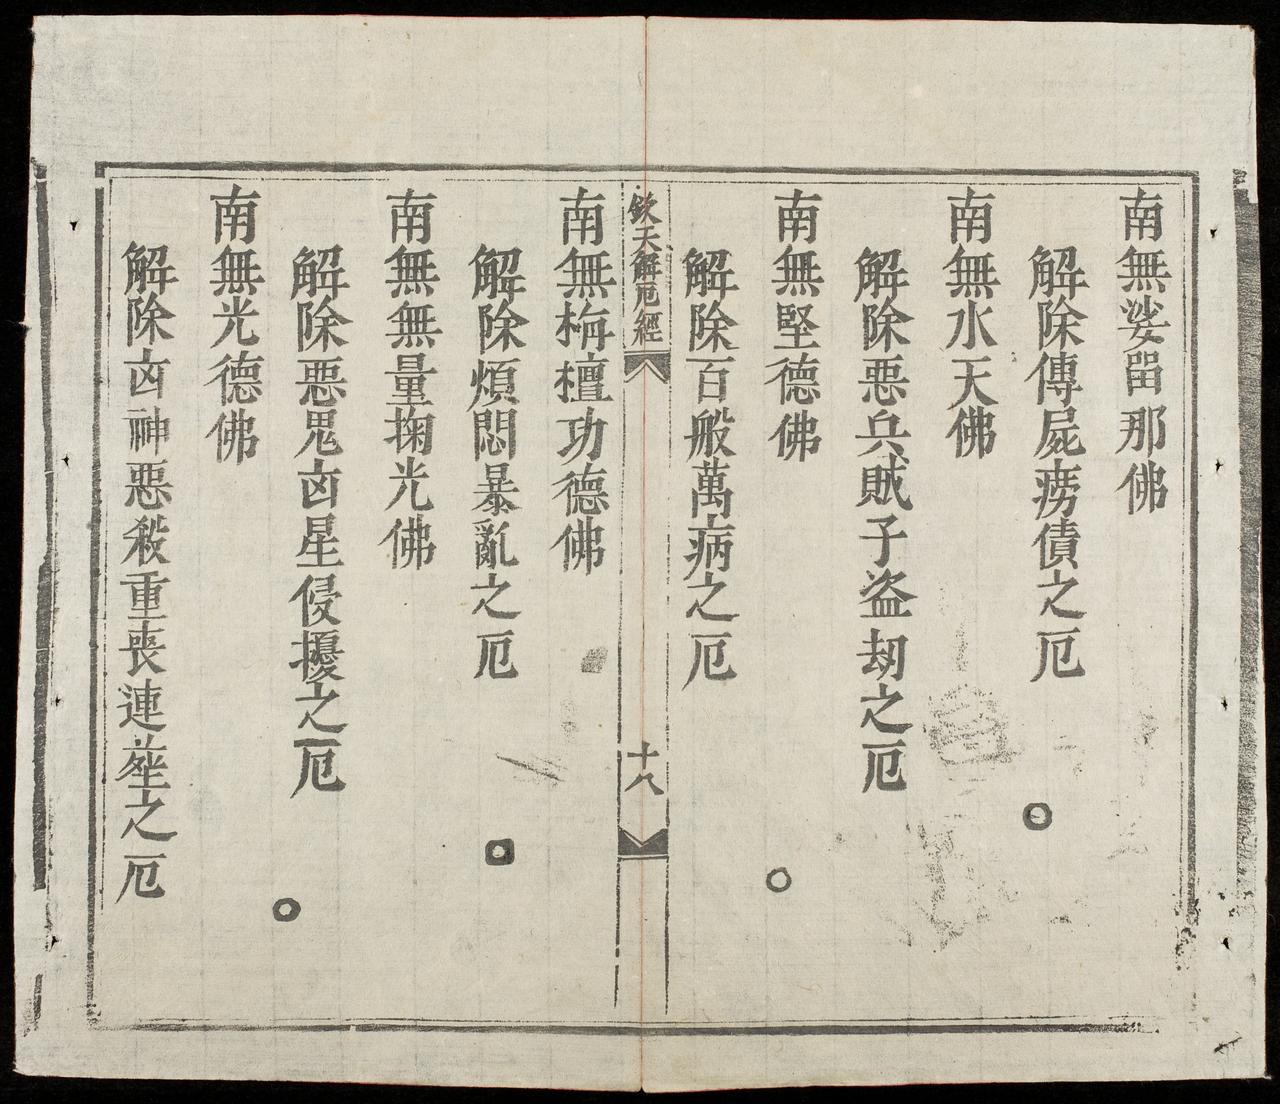 南無娑畱那佛
解除傳屍痨債之厄
南無水天佛
解除惡兵賊子盗刼之厄
南無堅德佛
解除百般萬病之厄
欽天解厄經
十八
南無栴檀功德佛
解除煩悶暴亂之厄
南無無量掬光佛
解除惡鬼凶星侵擾之厄
南無光德佛
解除凶神惡殺重喪連塟之厄